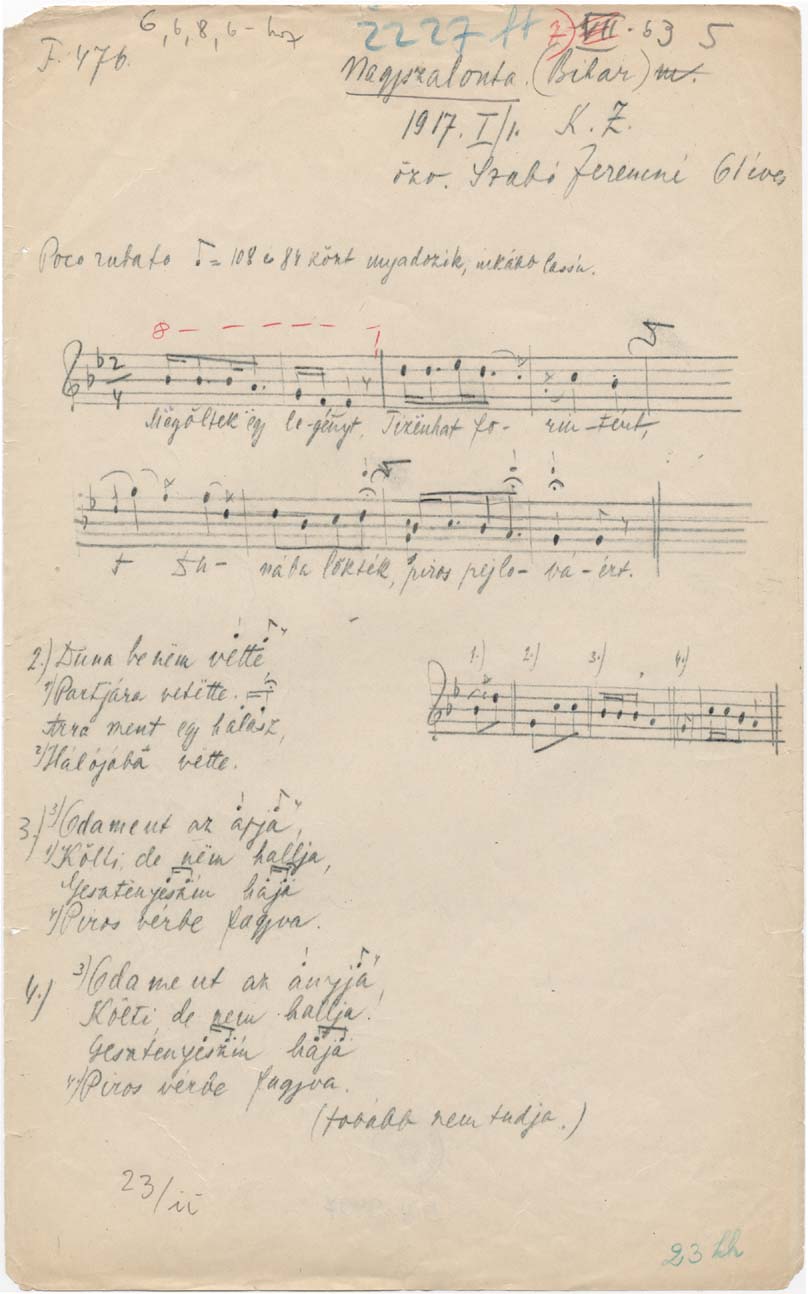 6, 6, 8, 6-hoz
2227 ft
63 5
F. 476.
Nagyszalonta. (Bihar) m.
1917. I/1. K. Z.
özv. Szabó Ferencné 61 éves
Poco rubato = 108 és 84 közt ingadozik, inkább lassú.
8 - - - - - 7
2
4
Mëgöltek ëgy le-gényt, Tizënhat fo- rin-tért,
T Du- nába lökték, piros pejlo- vá-ért.
2.) Duna be nëm vëtte,
1) Partjára vetëtte.
Arra ment ëgy halász,
2) Hálójába vëtte.
1.) 2.) 3.) 4.)
3.) 3) Odament az apja,
1) Költi de nëm hallja,
Gesztenyeszin haja
4) Piros vérbe fagyva.
4.) 3) Odament az anyja,
Költi, de nem hallja!
Gesztenyeszin haja
4) Piros vérbe fagyva.
(tovább nem tudja.)
23/ii
23 hh